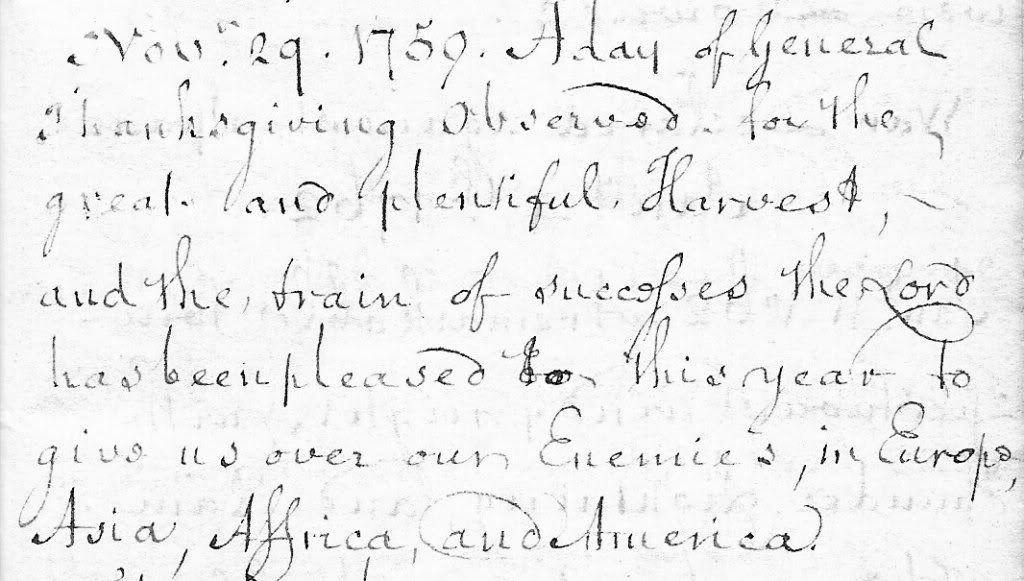 Novr. 29. 1759. A day of General
Thanksgiving observed for the
great and plentiful Harvest,
and the train of successes the Lord
has been pleased to this year to
give us over our Enemies, in Europe,
Asia, Affrica, and America.